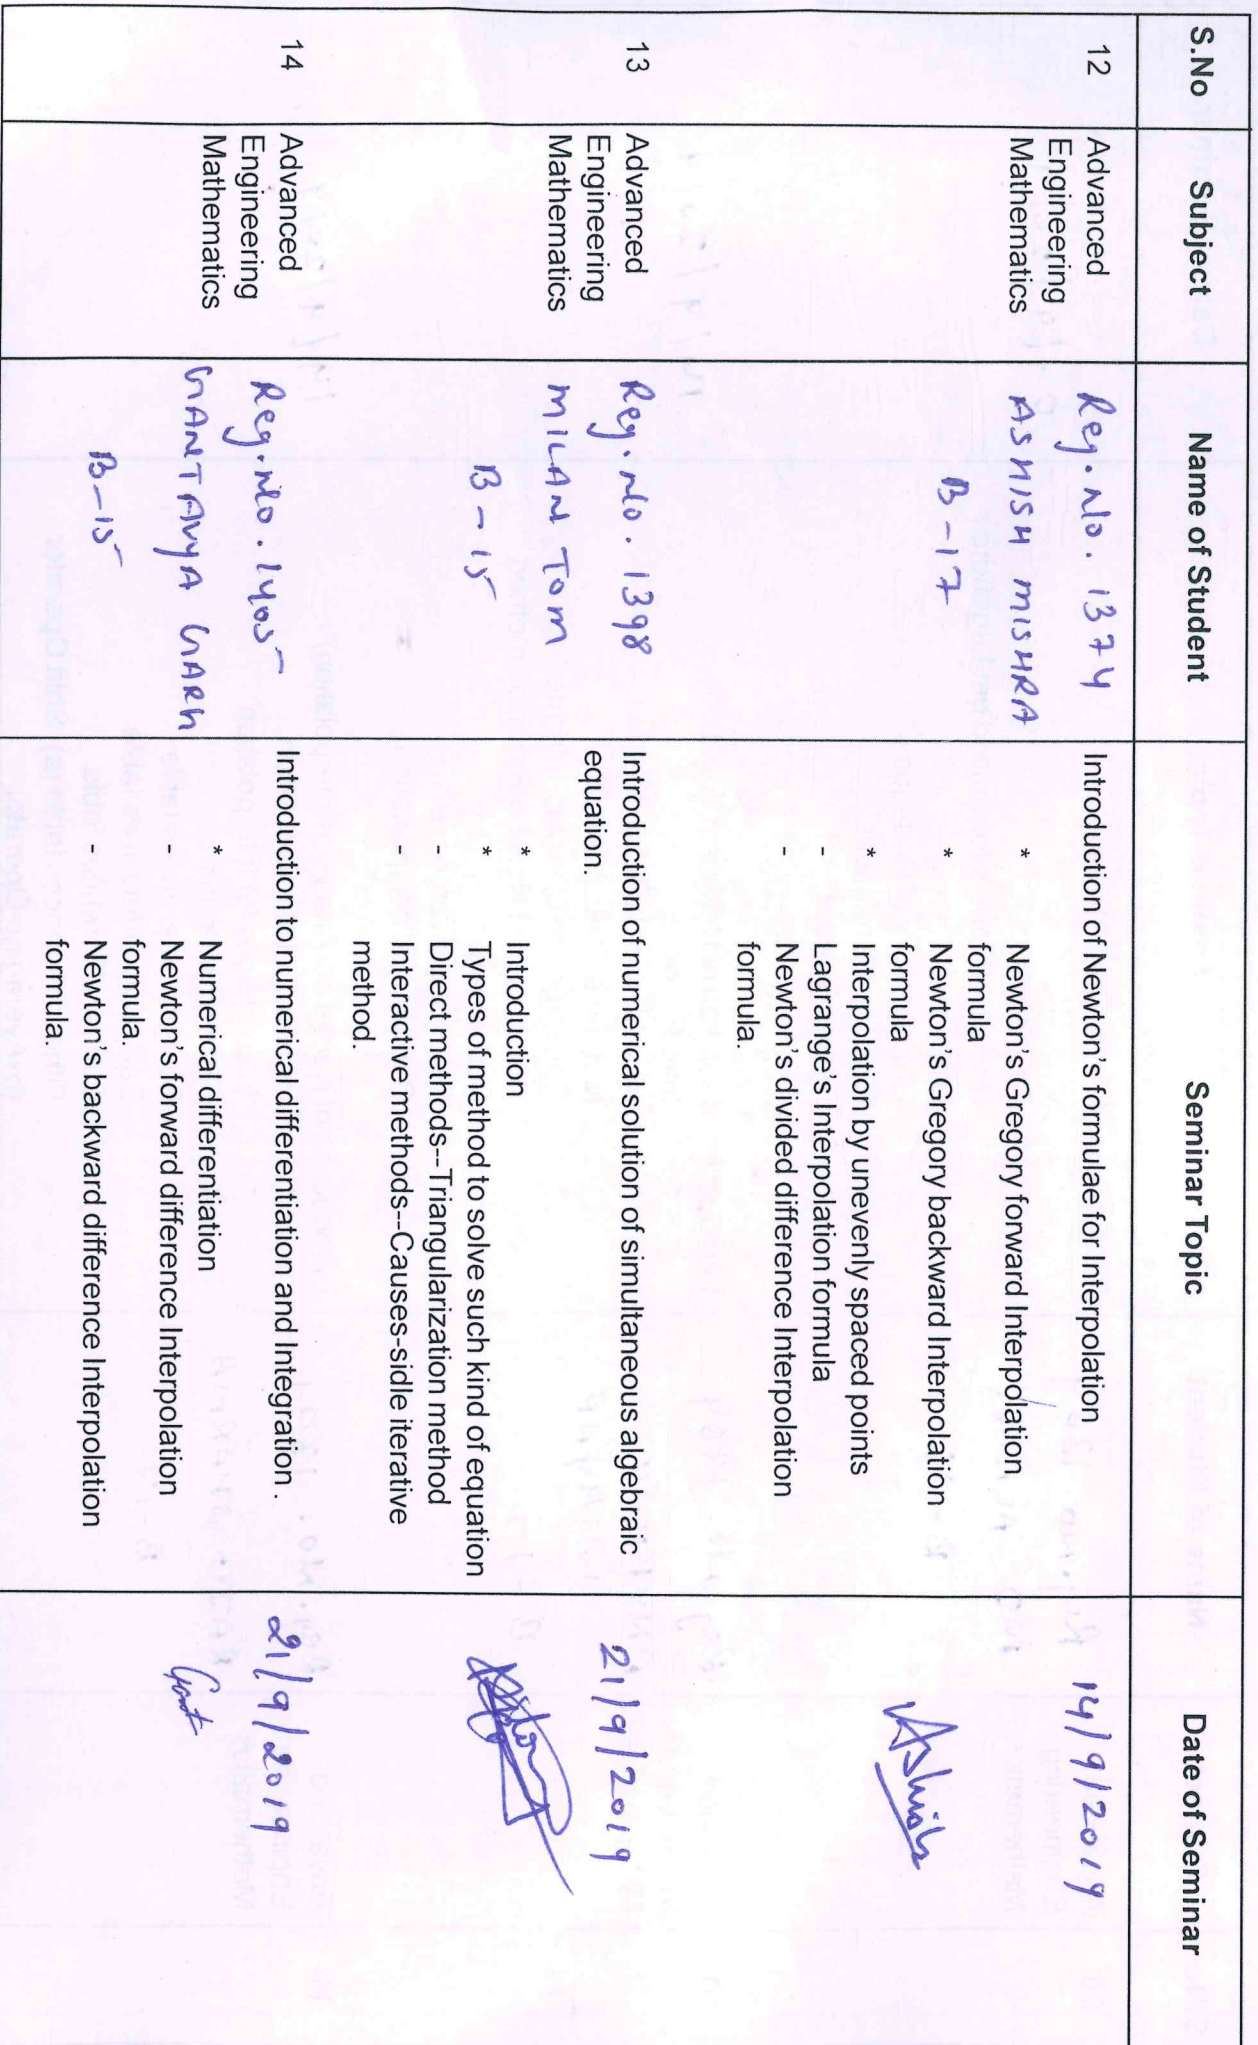 S.No Subject Name of Student Seminar Topic Date of Seminar
12
Advanced
Engineering
Mathematics
Reg. No. 1374
ASHISH MISHRA
B-17
Introduction of Newton's formulae for Interpolation
* Newton's Gregory forward Interpolation
formula
* Newton's Gregory backward Interpolation
formula
* Interpolation by unevenly spaced points
- Lagrange's Interpolation formula
- Newton's divided difference Interpolation
formula.
14/9/2019
Ashish
13
Advanced
Engineering
Mathematics
Reg. No. 1398
MILAN TOM
B-15
Introduction of numerical solution of simultaneous algebraic
equation.
* Introduction
* Types of method to solve such kind of equation
- Direct methods--Triangularization method
- Interactive methods--Causes-sidle iterative
method.
21/9/2019
14
Advanced
Engineering
Mathematics
Reg. No. 1405
GANTAVYA GARG
B-15
Introduction to numerical differentiation and Integration.
* Numerical differentiation
- Newton's forward difference Interpolation
formula.
- Newton's backward difference Interpolation
formula.
21/9/2019